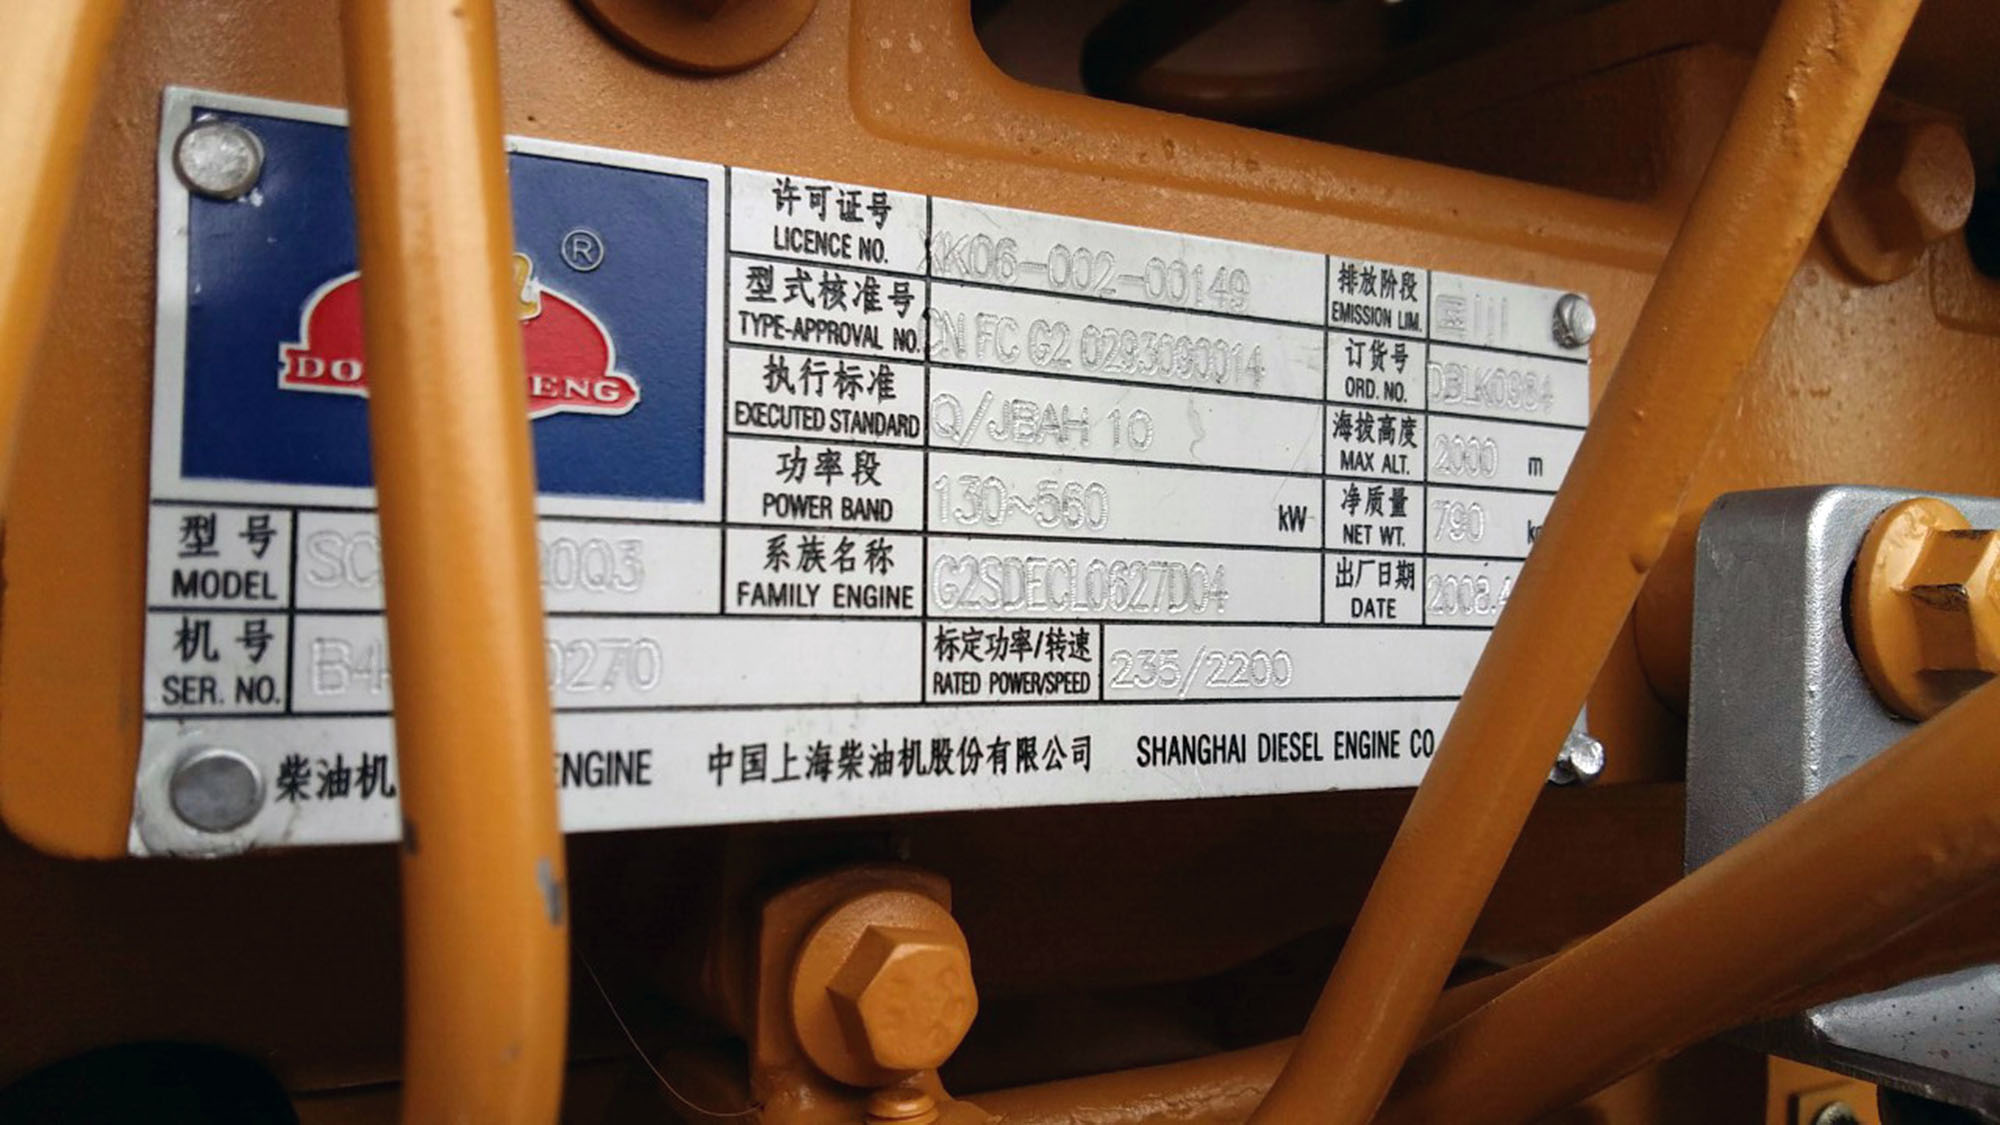 ®
许可证号
LICENCE NO.
XK06-002-00149
排放阶段
EMISSION LIM.
型式核准号
TYPE-APPROVAL NO.
CN FC G2 0293090014
订货号
ORD. NO.
DBLK0984
执行标准
EXECUTED STANDARD
Q/JBAH 10
海拔高度
MAX ALT.
2000 m
功率段
POWER BAND
130~560 kW
净质量
NET WT.
790
型号
MODEL
系族名称
FAMILY ENGINE
G2SDECL0627D04
出厂日期
DATE
2008.4
机号
SER. NO.
标定功率/转速
RATED POWER/SPEED
235/2200
柴油机 中国上海柴油机股份有限公司 SHANGHAI DIESEL ENGINE CO